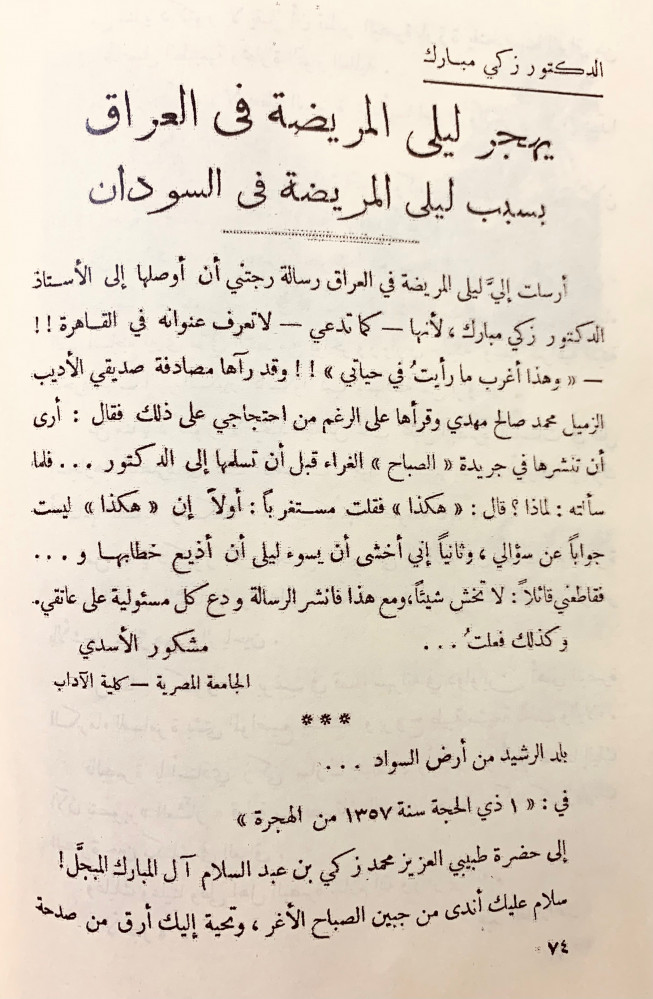 الدكتور زكي مبارك
يهجر ليلى المريضة في العراق
بسبب ليلى المريضة في السودان
أرسلت إليَّ ليلى المريضة في العراق رسالة رجتني أن أوصلها إلى الأستاذ
الدكتور زكي مبارك، لأنها — كما تدعي — لا تعرف عنوانه في القاهرة !!
— « وهذا أغرب ما رأيتُ في حياتي » !! وقد رآها مصادفة صديقي الأديب
الزميل محمد صالح مهدي وقرأها على الرغم من احتجاجي على ذلك فقال : أرى
أن تنشرها في جريدة « الصباح » الغراء قبل أن تسلمها إلى الدكتور ... فلما
سألته : لماذا ؟ قال : « هكذا » فقلت مستغرباً : أولاً إن « هكذا » ليست
جواباً عن سؤالي ، وثانياً إني أخشى أن يسوء ليلى أن أذيع خطابها و ...
فقاطعني قائلاً : لا تخش شيئاً، ومع هذا فانشر الرسالة ودع كل مسئولية على عاتقي.
وكذلك فعلتُ ...
مشكور الأسدي
الجامعة المصرية — كلية الآداب
***
بلد الرشيد من أرض السواد ...
في : « ١ ذي الحجة سنة ١٣٥٧ من الهجرة »
إلى حضرة طبيبي العزيز محمد زكي بن عبد السلام آل المبارك المبجَّل !
سلام عليك أندى من جبين الصباح الأغر ، وتحية إليك أرق من صدحة
٧٤